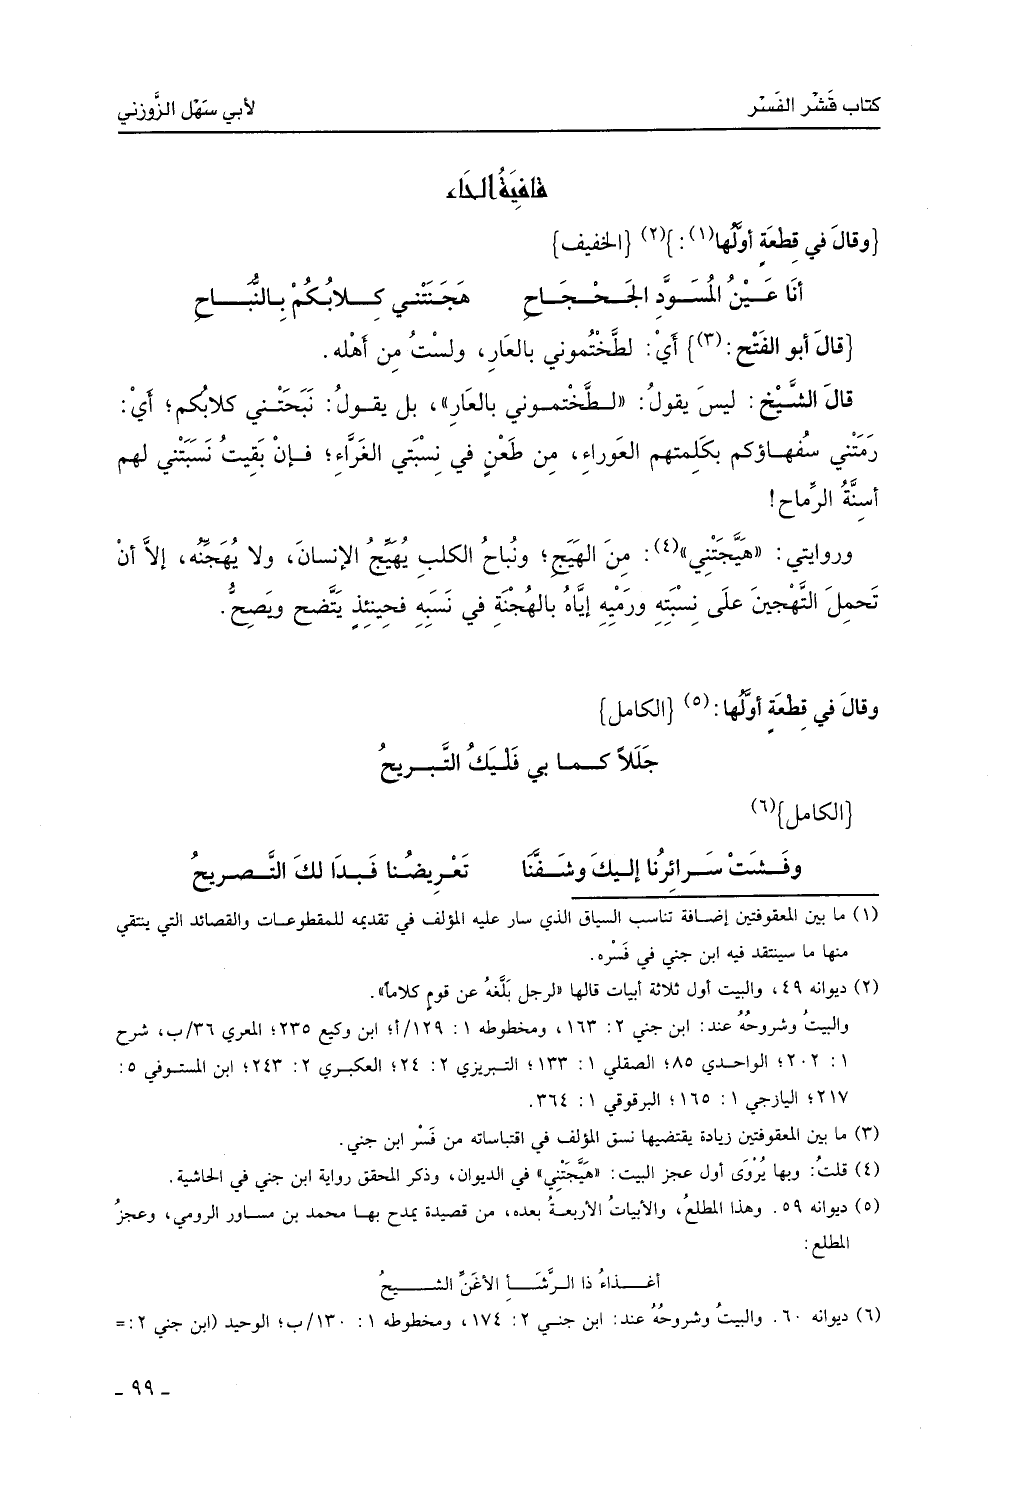 كتاب قَشْر الفَسْر
لأبي سَهْل الزَّوزني
قافيَةُ الحَاء
{وقالَ في قِطعَةٍ أوَّلُها(١):}(٢) {الخفيف}
أنَا عَـيْنُ المُسَـوَّدِ الجَـحْـجَـاحِ هَجَنَتْني كِـلابُكُمْ بِـالنُّبَـــاحِ
{قالَ أبو الفَتْح:(٣)} أيْ: لطَّخْتُموني بالعَارِ، ولستُ مِن أهْله.
قالَ الشَّيْخ: ليسَ يقولُ: «لـطَّخْتمـوني بالعَارِ»، بل يقـولُ: نَبَحَتْـني كلابُكم؛ أيْ:
رَمَتْني سُفهـاؤكم بكَلِمتهم العَوراءِ، مِن طَعْنٍ في نِسْبَتي الغَرَّاءِ؛ فـإنْ بَقِيتُ نَسَبَتْني لهم
أسِنَّةُ الرِّماح!
وروايتي: «هَيَّجَتْنِي»(٤): مِنَ الهَيَجِ؛ ونُباحُ الكلبِ يُهَيِّجُ الإنسانَ، ولا يُهَجِّنُه، إلاَّ أنْ
تَحمِلَ التَّهْجينَ علَى نِسْبَتِهِ ورَمْيِهِ إيَّاهُ بالهُجْنَةِ في نَسَبِهِ فحِينئذٍ يَتَّضح ويَصِحُّ.
وقالَ في قِطعَةٍ أوَّلُها:(٥) {الكامل}
جَلَلاً كـــمـا بي فَلْيَكُ التَّـبـريحُ
{الكامل}(٦)
وفَـشَتْ سَـرائرُنا إليكَ وشَـفَّنَا تَعْريضُـنا فَـبدَا لكَ التَّـصريحُ
(١) ما بين المعقوفتين إضـافة تناسب السياق الذي سار عليه المؤلف في تقديمه للمقطوعـات والقصائد التي ينتقي
منها ما سينتقد فيه ابن جني في فَسْره.
(٢) ديوانه ٤٩، والبيت أول ثلاثة أبيات قالها «لرجل بَلَّغهُ عن قومٍ كلاماً».
والبيتُ وشروحُهُ عند: ابن جني ٢: ١٦٣، ومخطوطه ١: ١٢٩/أ؛ ابن وكيع ٢٣٥؛ المعري ٣٦/ب، شرح
١: ٢٠٢؛ الواحـدي ٨٥؛ الصقلي ١: ١٣٣؛ التـبريزي ٢: ٢٤؛ العكبري ٢: ٢٤٣؛ ابن المستـوفي ٥:
٢١٧؛ اليازجي ١: ١٦٥؛ البرقوقي ١: ٣٦٤.
(٣) ما بين المعقوفتين زيادة يقتضيها نسق المؤلف في اقتباساته من فَسْر ابن جني.
(٤) قلتُ: وبها يُرْوَى أول عجز البيت: «هَيَّجَتْنِي» في الديوان، وذكر المحقق رواية ابن جني في الحاشية.
(٥) ديوانه ٥٩. وهذا المطلعُ، والأبياتُ الأربعـةُ بعده، من قصيدة يمدح بهـا محمد بن مسـاور الرومي، وعجزُ
المطلع:
أغـــــذاءُ ذا الـرَّشَـــأِ الأغَنِّ الشـــــيحُ
(٦) ديوانه ٦٠. والبيتُ وشروحُهُ عند: ابن جنـي ٢: ١٧٤، ومخطوطه ١: ١٣٠/ب؛ الوحيد (ابن جني ٢:=
ـ ٩٩ ـ